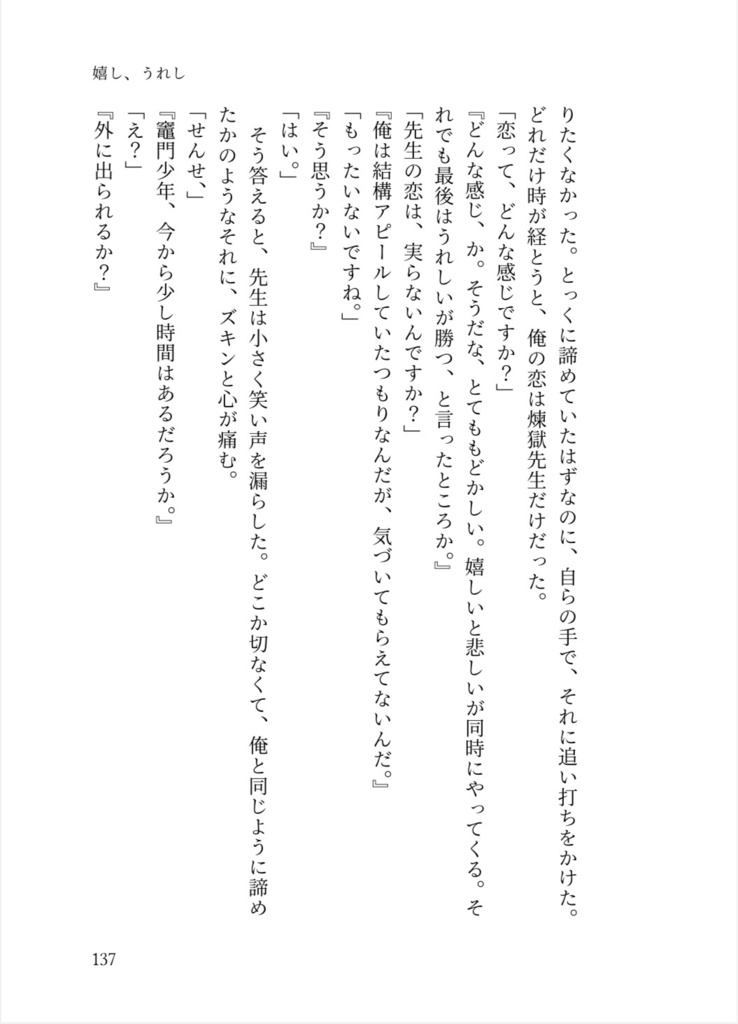 嬉し、うれし
りたくなかった。とっくに諦めていたはずなのに、自らの手で、それに追い打ちをかけた。
どれだけ時が経とうと、俺の恋は煉獄先生だけだった。
「恋って、どんな感じですか？」
『どんな感じ、か。そうだな、とてももどかしい。嬉しいと悲しいが同時にやってくる。そ
れでも最後はうれしいが勝つ、と言ったところか。』
「先生の恋は、実らないんですか？」
『俺は結構アピールしていたつもりなんだが、気づいてもらえてないんだ。』
「もったいないですね。」
『そう思うか？』
「はい。」
　そう答えると、先生は小さく笑い声を漏らした。どこか切なくて、俺と同じように諦め
たかのようなそれに、ズキンと心が痛む。
「せんせ、」
『竈門少年、今から少し時間はあるだろうか。』
「え？」
『外に出られるか？』
137